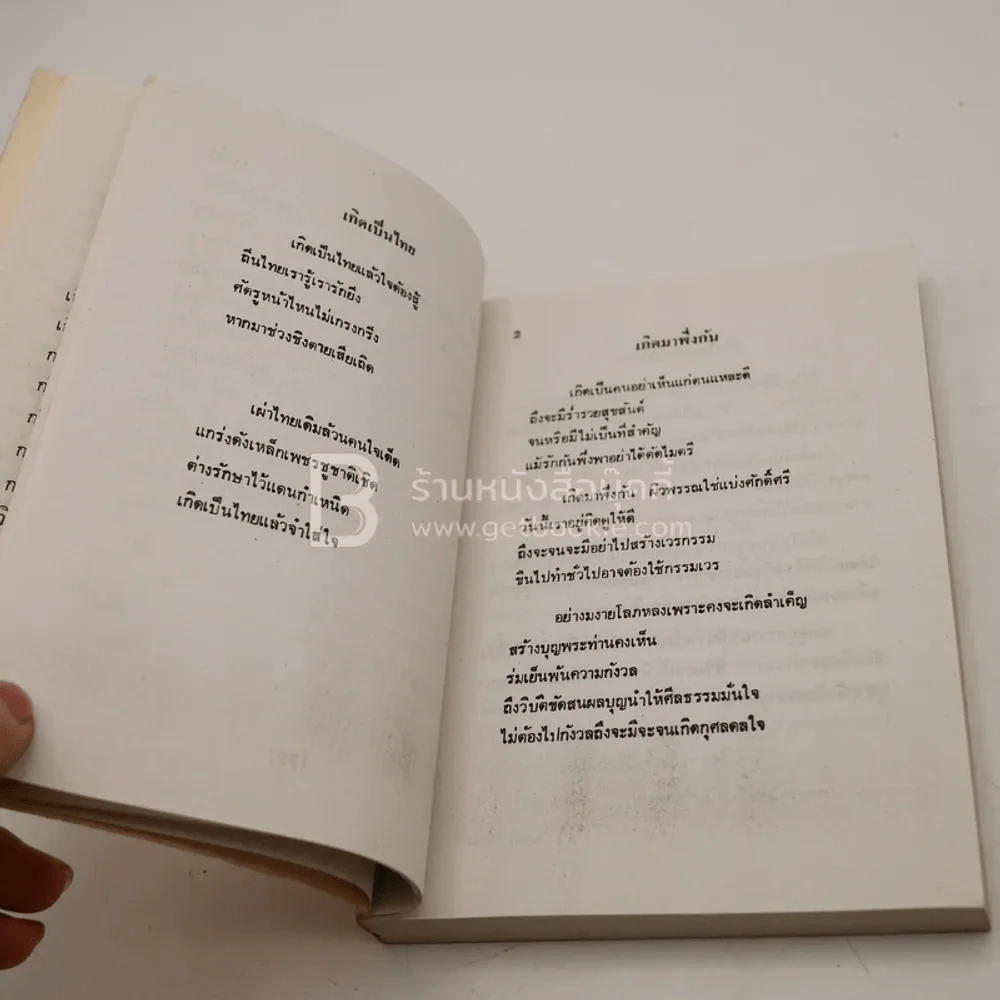 เกิดเป็นไทย
เกิดเป็นไทยแล้วใจต้องสู้
ถิ่นไทยเรารู้เรารักยิ่ง
ศัตรูหน้าไหนไม่เกรงกริ่ง
หากมาช่วงชิงตายเสียเถิด
เผ่าไทยเดิมล้วนคนใจเด็ด
แกร่งดังเหล็กเพชรชูชาติเชิด
ต่างรักษาไว้แดนกำเหนิด
เกิดเป็นไทยแล้วจำใส่ใจ
2
เกิดมาพึ่งกัน
เกิดเป็นคนอย่าเห็นแก่ตนแหละดี
ถึงจะมีร่ำรวยสุขสันต์
จนหรือมีไม่เป็นที่สำคัญ
แม้รักกันพึ่งพาอย่าได้ตัดไมตรี
เกิดมาพึ่งกัน ผิวพรรณใช่แบ่งศักดิ์ศรี
วันนี้เราอยู่คิดดูให้ดี
ถึงจะจนจะมีอย่าไปสร้างเวรกรรม
ขืนไปทำชั่วไปอาจต้องใช้กรรมเวร
อย่างมงายโลภหลงเพราะคงจะเกิดลำเค็ญ
สร้างบุญพระท่านคงเห็น
ร่มเย็นพ้นความกังวล
ถึงวิบัติขัดสนผลบุญนำให้ศีลธรรมมั่นใจ
ไม่ต้องไปกังวลถึงจะมีจะจนเกิดกุศลดลใจ
B ร้านหนังสือบุ๊กกี้
www.getbookie.com